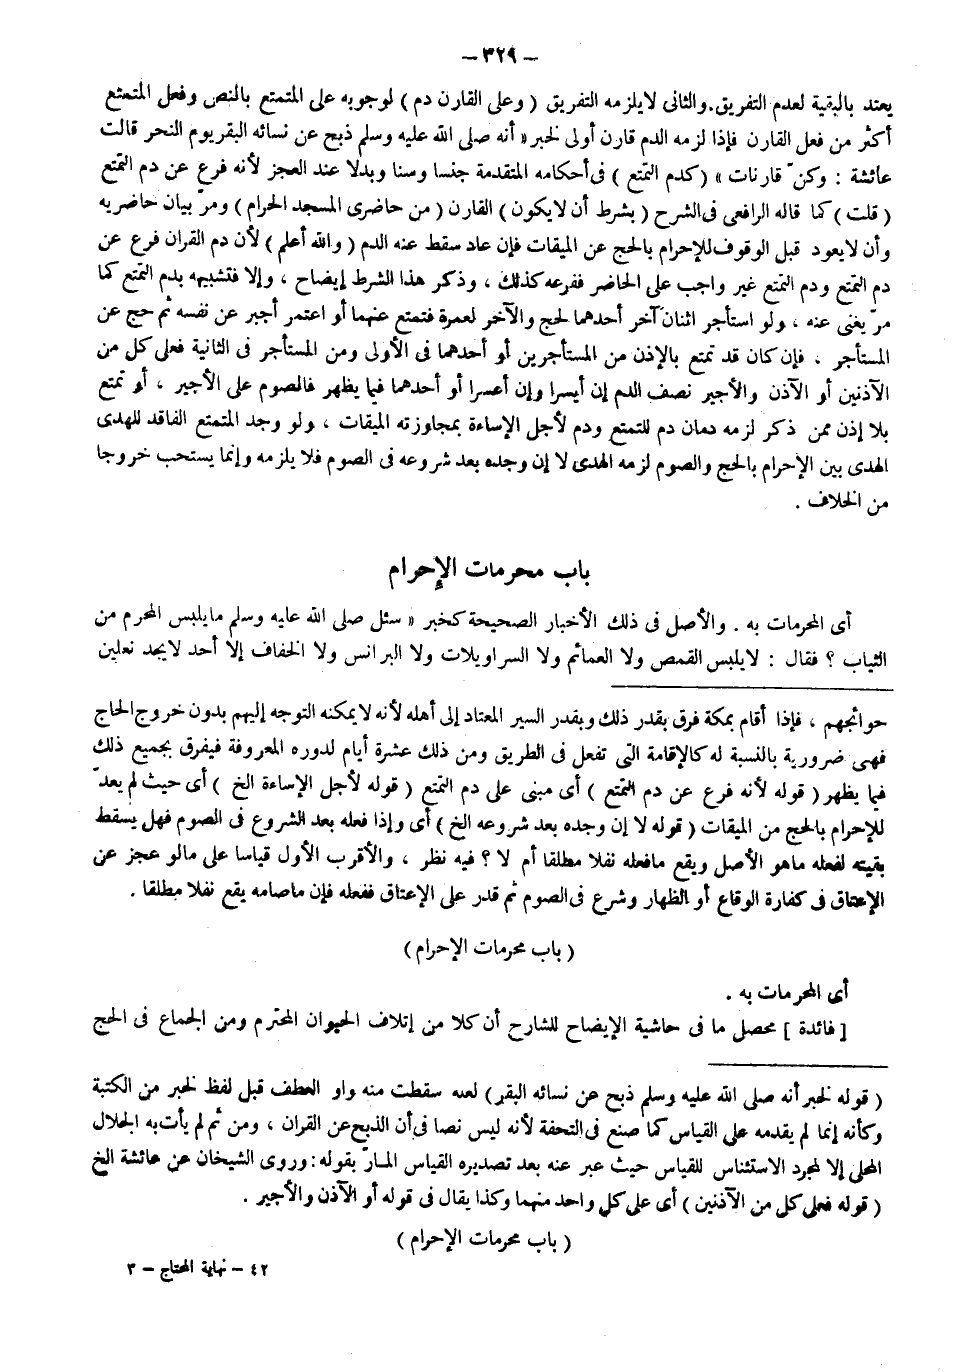 – ٣٢٩ –
يعتد بالبقية لعدم التفريق. والثانى لايلزمه التفريق ( وعلى القارن دم ) لوجوبه على المتمتع بالنص وفعل المتمتع
أكثر من فعل القارن فإذا لزمه الدم قارن أولى لخبر « أنه صلى الله عليه وسلم ذبح عن نسائه البقر يوم النحر قالت
عائشة : وكنّ قارنات » ( كدم التمتع ) فى أحكامه المتقدمة جنسا وسنا وبدلا عند العجز لأنه فرع عن دم التمتع
( قلت ) كما قاله الرافعى فى الشرح ( بشرط أن لايكون ) القارن ( من حاضرى المسجد الحرام ) ومرّ بيان حاضريه
وأن لايعود قبل الوقوف للإحرام بالحج عن الميقات فإن عاد سقط عنه الدم ( والله أعلم ) لأن دم القران فرع عن
دم التمتع ودم التمتع غير واجب على الحاضر ففرعه كذلك ، وذكر هذا الشرط إيضاح ، وإلا فتشبيهه بدم التمتع كما
مرّ يغنى عنه ، ولو استأجر اثنان آخر أحدهما لحج والآخر لعمرة فتمتع عنهما أو اعتمر أجير عن نفسه ثم حج عن
المستأجر ، فإن كان قد تمتع بالإذن من المستأجرين أو أحدهما فى الأولى ومن المستأجر فى الثانية فعلى كل من
الآذنين أو الآذن والأجير نصف الدم إن أيسرا وإن أعسرا أو أحدهما فيما يظهر فالصوم على الأجير ، أو تمتع
بلا إذن ممن ذكر لزمه دمان دم للتمتع ودم لأجل الإساءة بمجاوزته الميقات ، ولو وجد المتمتع الفاقد للهدى
الهدى بين الإحرام بالحج والصوم لزمه الهدى لا إن وجده بعد شروعه فى الصوم فلا يلزمه وإنما يستحب خروجا
من الخلاف .
باب محرمات الإحرام
أى المحرمات به . والأصل فى ذلك الأخبار الصحيحة كخبر « سئل صلى الله عليه وسلم مايلبس المحرم من
الثياب ؟ فقال : لايلبس القمص ولا العمائم ولا السراويلات ولا البرانس ولا الخفاف إلا أحد لايجد نعلين
حوائجهم ، فإذا أقام بمكة فرق بقدر ذلك وبقدر السير المعتاد إلى أهله لأنه لايمكنه التوجه إليهم بدون خروج الحاج
فهى ضرورية بالنسبة له كالإقامة التى تفعل فى الطريق ومن ذلك عشرة أيام لدوره المعروفة فيفرق بجميع ذلك
فيما يظهر ( قوله لأنه فرع عن دم التمتع ) أى مبنى على دم التمتع ( قوله لأجل الإساءة الخ ) أى حيث لم يعدّ
للإحرام بالحج من الميقات ( قوله لا إن وجده بعد شروعه الخ ) أى وإذا فعله بعد الشروع فى الصوم فهل يسقط
بقيته لفعله ماهو الأصل ويقع مافعله نفلا مطلقا أم لا ؟ فيه نظر ، والأقرب الأول قياسا على مالو عجز عن
الإعتاق فى كفارة الوقاع أو الظهار وشرع فى الصوم ثم قدر على الإعتاق ففعله فإن ماصامه يقع نفلا مطلقا .
( باب محرمات الإحرام )
أى المحرمات به .
[ فائدة ] محصل ما فى حاشية الإيضاح للشارح أن كلا من إتلاف الحيوان المحترم ومن الجماع فى الحج
( قوله لخبر أنه صلى الله عليه وسلم ذبح عن نسائه البقر ) لعله سقطت منه واو العطف قبل لفظ لخبر من الكتبة
وكأنه إنما لم يقدمه على القياس كما صنع فى التحفة لأنه ليس نصا فى أن الذبح عن القران ، ومن ثم لم يأت به الجلال
المحلى إلا لمجرد الاستئناس للقياس حيث عبر عنه بعد تصديره القياس المـارّ بقوله : وروى الشيخان عن عائشة الخ
( قوله فعلى كل من الآذنين ) أى على كل واحد منهما وكذا يقال فى قوله أو الآذن والأجير .
( باب محرمات الإحرام )
٤٢ – نهاية المحتاج – ٣